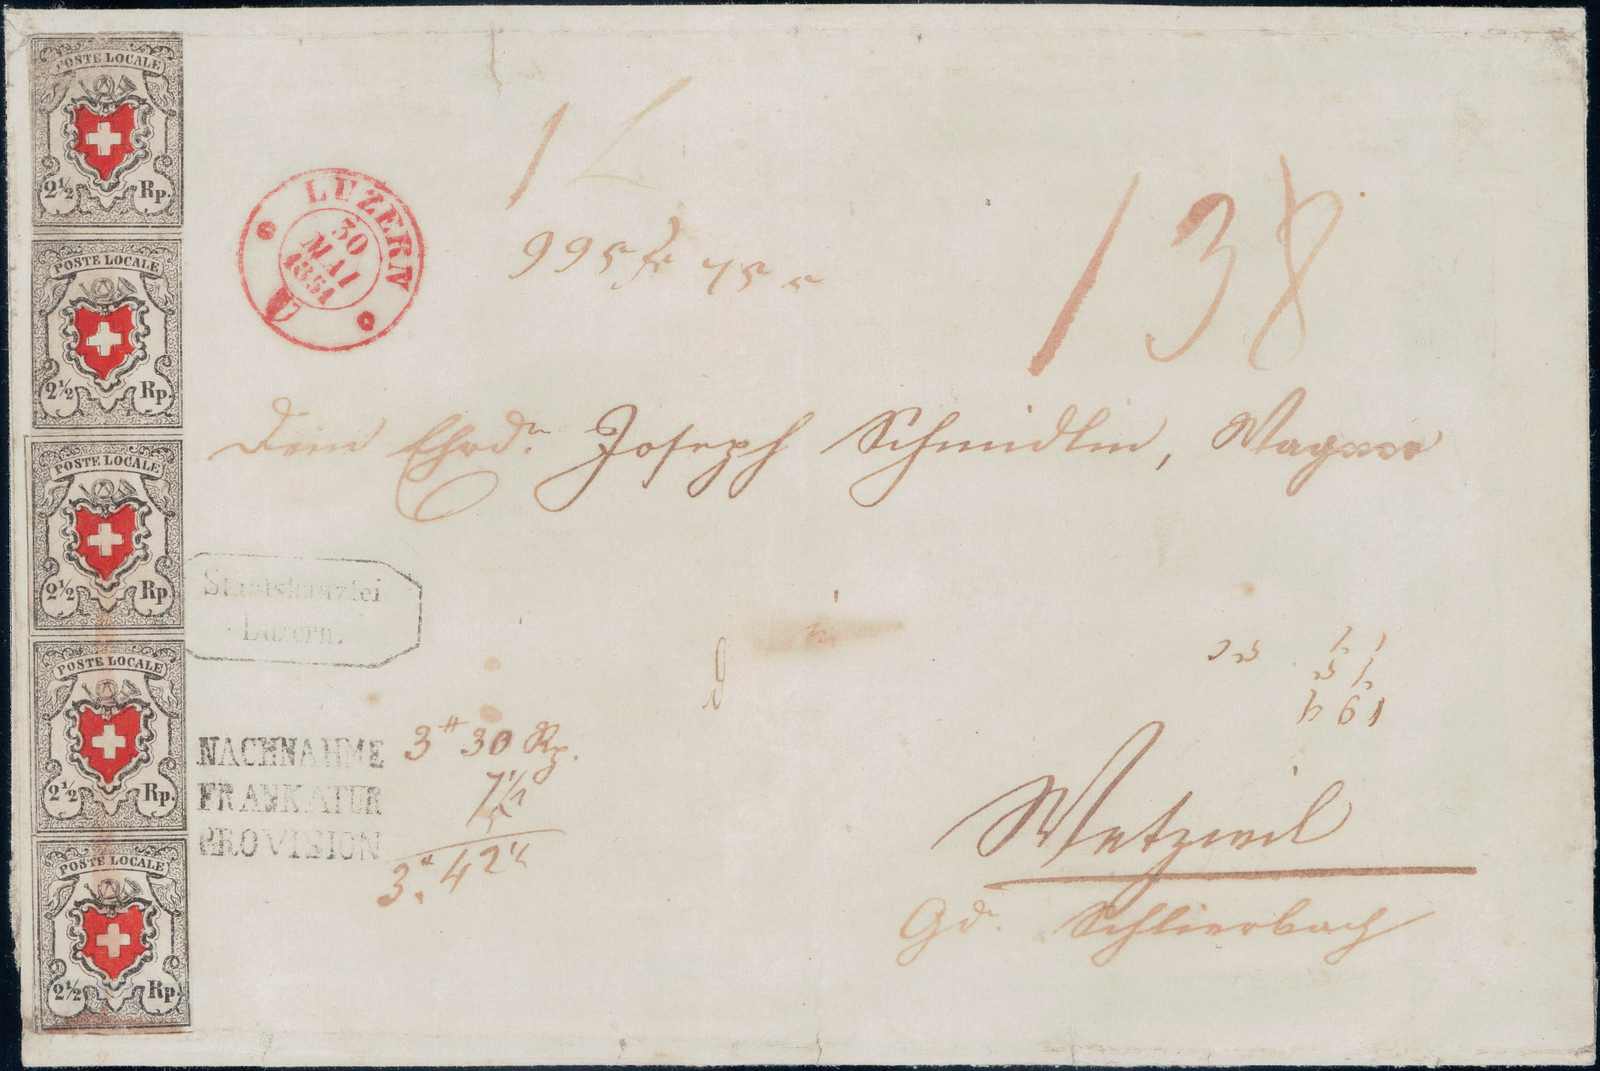 POSTE LOCALE
2½ Rp.
POSTE LOCALE
2½ Rp.
POSTE LOCALE
2½ Rp.
POSTE LOCALE
2½ Rp.
POSTE LOCALE
2½ Rp.
LUZERN
30
MAI
1851
138
Joseph Schmidlin, Wagner
Staatskanzlei
Luzern.
NACHNAHME 3 30 Rp.
FRANKATUR 7½
PROVISION 5
3. 42
Wetzwil
Gde. Schlierbach